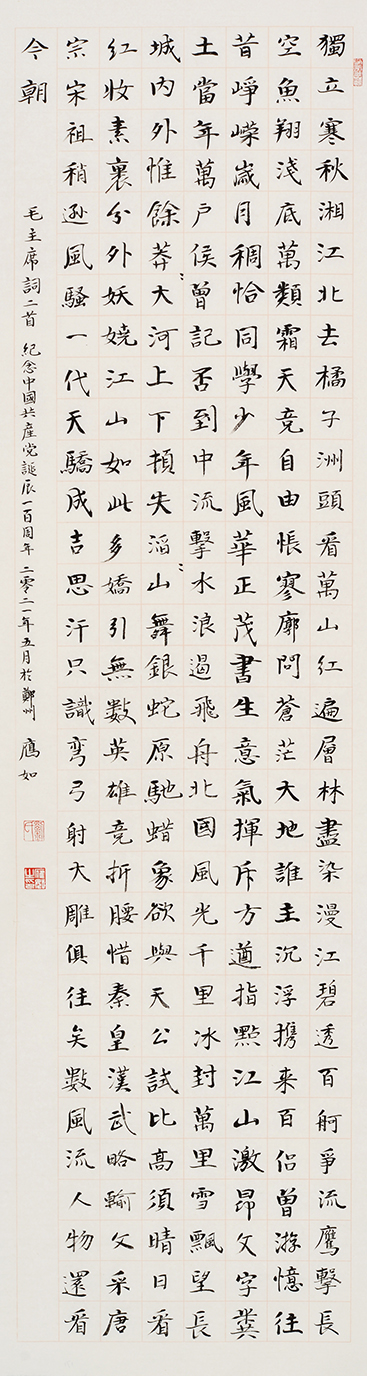 獨立寒秋湘江北去橘子洲頭看萬山紅遍層林盡染漫江碧透百舸爭流鷹擊長
空魚翔淺底萬類霜天竞自由悵寥廓問蒼茫大地誰主沉浮携来百侣曾游憶往
昔崢嶸歲月稠恰同學少年風華正茂書生意氣揮斥方遒指點江山激昂文字糞
土當年萬户侯曾記否到中流擊水浪遏飛舟北國風光千里冰封萬里雪飄望長
城内外惟餘莽〻大河上下頓失滔〻山舞銀蛇原馳蜡象欲與天公試比高須晴日看
紅妆素裹分外妖嬈江山如此多嬌引無數英雄竞折腰惜秦皇漢武略輸文采唐
宗宋祖稍遜風騷一代天驕成吉思汗只識弯弓射大雕俱往矣數風流人物還看
今朝
毛主席詞二首 紀念中國共產党誕辰一百周年 二零二一年五月於鄭州 鷹如